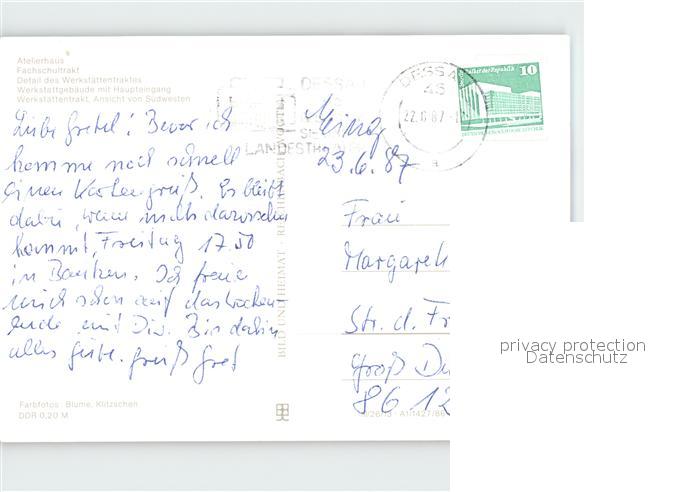 Atelierhaus
Fachschultrakt
Detail des Werkstättentraktes
Werkstattgebäude mit Haupteingang
Werkstättentrakt, Ansicht von Südwesten
Liebe Gretel! Bevor ich
komme noch schnell
einen Kartengruß. Es bleibt
dabei, wenn nichts dazwischen
kommt, Freitag 17.50
in Bautzen. Ich freue
mich schon auf das Wochen-
ende mit Dir. Bis dahin
alles Gute. Gruß
Farbfotos: Blume, Klitzschen
DDR 0,20 M
BILD UND HEIMAT · REICHENBACH (VOGTL
DESSAU
LANDESTH
DESSAU
45
22.6.87
a
Palast der Republik
10
23.6.87
Frau
Margareth
Str. d. Fr
Groß Du
8612
A1/1427/86
privacy protection
Datenschutz